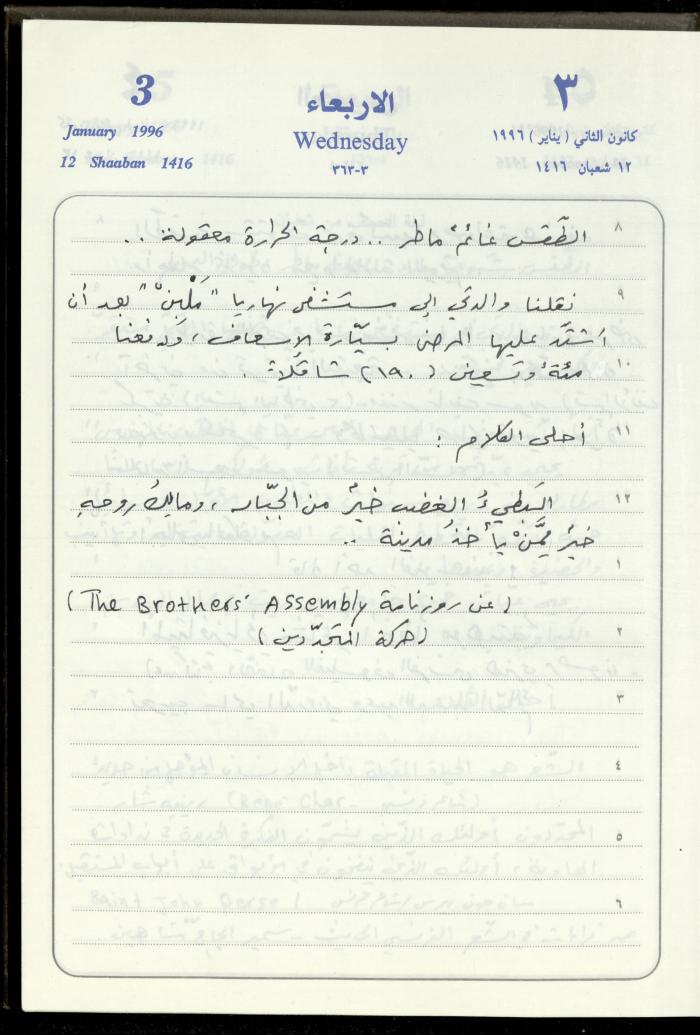 3
الاربعاء
٣
January 1996
Wednesday
كانون الثاني (يناير) ١٩٩٦
12 Shaaban 1416
٣-٣٦٣
١٢ شعبان ١٤١٦
٨ الطّقس غائمٌ ماطر .. درجة الحرارة معقولة ..
٩ نقلنا والدتي الى مستشفى نهاريا "مَلْبِنْ" بعد أن
اشتدّ عليها المرض بسيّارة الإسعاف، ودفعنا
١٠ مئةً وتسعين (١٩٠) شاقلاً.
١١ أحلى الكلام :
١٢ البَطيءُ الغضب خيرٌ من الجبّار، ومالِكُ روحهِ
خيرٌ مِمَّنْ يأخذُ مدينة ..
١
(عن روزنامة The Brothers' Assembly)
٢ (حركة المتجدّدين)
٣
٤
٥
٦